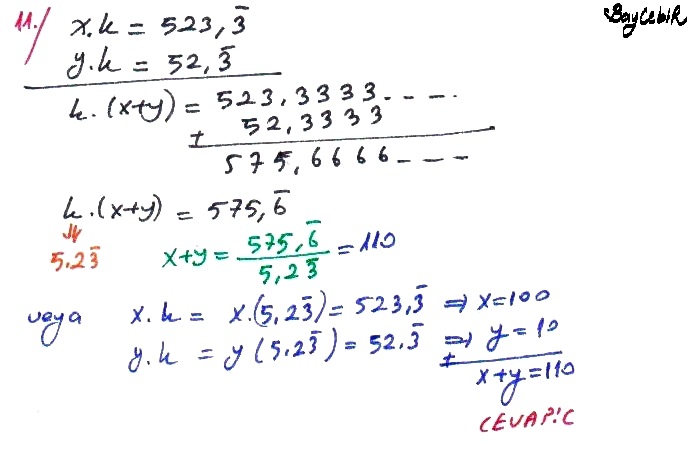 BayCebiR
11./ x.k = 523,3̅
y.k = 52,3̅
k.(x+y) = 523,3333.....
+ 52,3333
575,6666....
k.(x+y) = 575,6̅
⇓
5,23̅ x+y = 575,6̅ / 5,23̅ = 110
veya x.k = x.(5,23̅) = 523,3̅ ⇒ x=100
y.k = y(5,23̅) = 52,3̅ ⇒ y=10
+ x+y=110
CEVAP:C